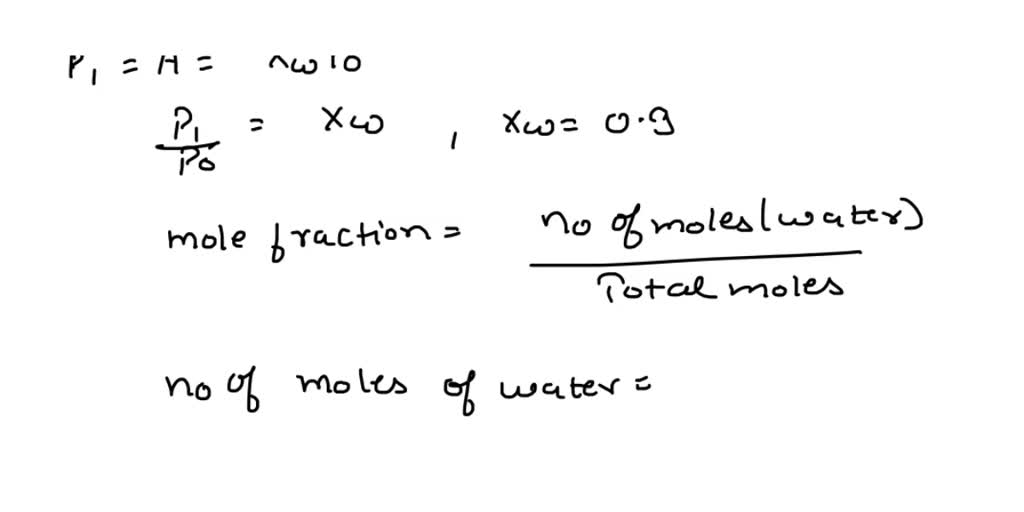 P₁ = H =
P₁/P₀ = Xω , Xω = 0.9
mole fraction = no of moles (water)
Total moles
no of moles of water =